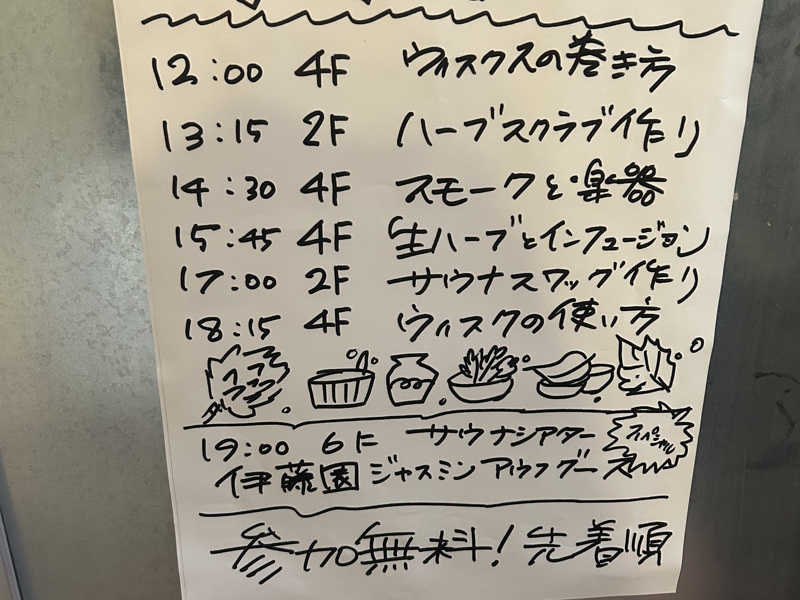 12:00 4F ウィスクスの巻き方
13:15 2F ハーブスクラブ作り
14:30 4F スモークと楽器
15:45 4F 生ハーブとインフュージョン
17:00 2F サウナスワッグ作り
18:15 4F ウィスクの使い方
19:00 6F サウナシアター スペシャル
伊藤園 ジャスミンアウフグース
参加無料！先着順